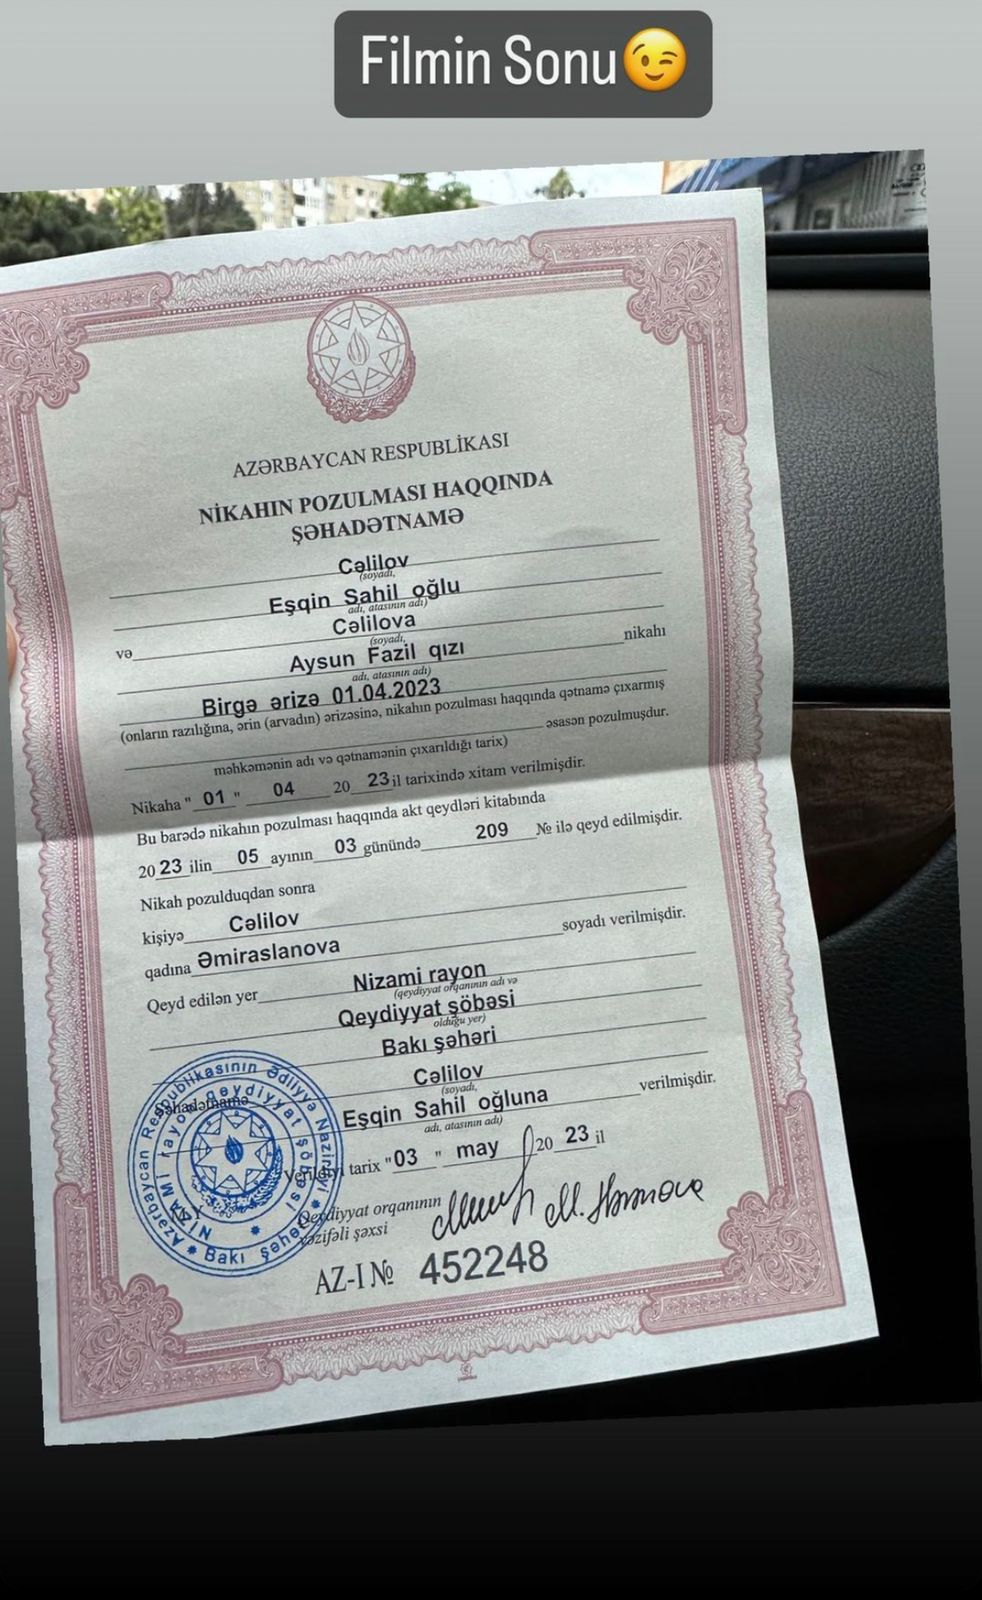 Filmin Sonu😉
AZƏRBAYCAN RESPUBLİKASI
NİKAHIN POZULMASI HAQQINDA
ŞƏHADƏTNAMƏ
Cəlilov
(soyadı,
Eşqin Sahil oğlu
adı, atasının adı)
və Cəlilova
(soyadı,
Aysun Fazil qızı nikahı
adı, atasının adı)
Birgə ərizə 01.04.2023
(onların razılığına, ərin (arvadın) ərizəsinə, nikahın pozulması haqqında qətnamə çıxarmış
əsasən pozulmuşdur.
məhkəmənin adı və qətnamənin çıxarıldığı tarix)
Nikaha " 01 " 04 20 23 il tarixində xitam verilmişdir.
Bu barədə nikahın pozulması haqqında akt qeydləri kitabında
20 23 ilin 05 ayının 03 günündə 209 № ilə qeyd edilmişdir.
Nikah pozulduqdan sonra
kişiyə Cəlilov
qadına Əmiraslanova soyadı verilmişdir.
Qeyd edilən yer Nizami rayon
(qeydiyyat orqanının adı və
Qeydiyyat şöbəsi
olduğu yer)
Bakı şəhəri
Şəhadətnamə Cəlilov
(soyadı,
Eşqin Sahil oğluna verilmişdir.
adı, atasının adı)
Verildiyi tarix "03 " may 20 23 il
Qeydiyyat orqanının
vəzifəli şəxsi
AZ-I № 452248
Azərbaycan Respublikasının Ədliyyə Nazirliyi
Nizami rayon qeydiyyat şöbəsi
Bakı şəhəri